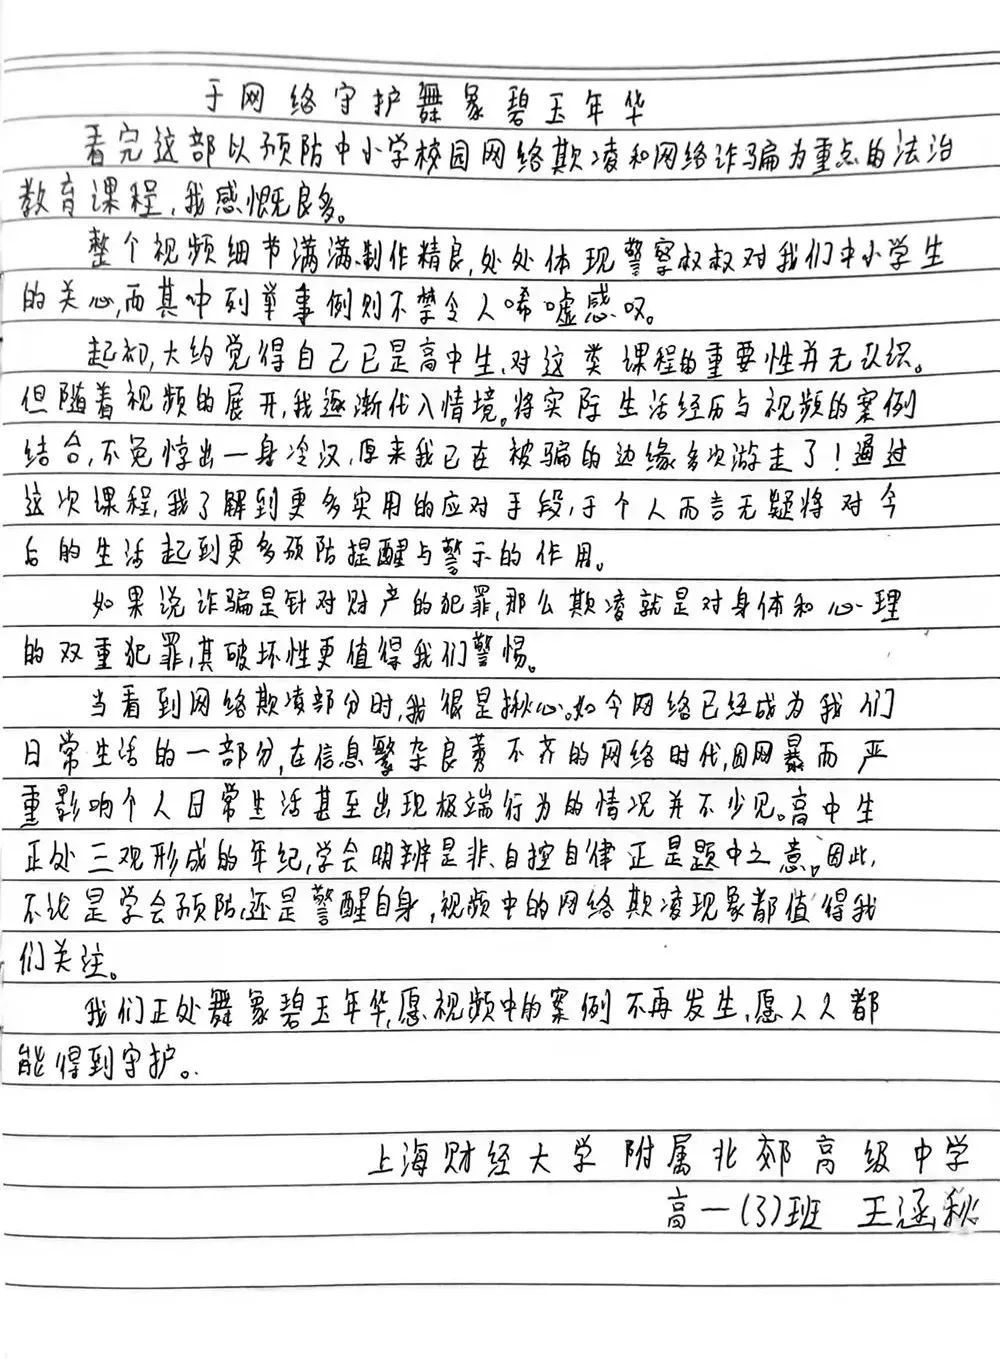 于网络守护舞象碧玉年华
看完这部以预防中小学校园网络欺凌和网络诈骗为重点的法治
教育课程,我感慨良多。
整个视频细节满满、制作精良,处处体现警察叔叔对我们中小学生
的关心,而其中列举事例则不禁令人唏嘘感叹。
起初,大约觉得自己已是高中生,对这类课程的重要性并无认识。
但随着视频的展开,我逐渐代入情境。将实际生活经历与视频的案例
结合,不免惊出一身冷汉,原来我已在被骗的边缘多次游走了!通过
这次课程,我了解到更多实用的应对手段,于个人而言无疑将对今
后的生活起到更多预防提醒与警示的作用。
如果说诈骗是针对财产的犯罪,那么欺凌就是对身体和心理
的双重犯罪,其破坏性更值得我们警惕。
当看到网络欺凌部分时,我很是揪心。如今网络已经成为我们
日常生活的一部分,在信息繁杂良莠不齐的网络时代,因网暴而严
重影响个人日常生活甚至出现极端行为的情况并不少见。高中生
正处三观形成的年纪,学会明辨是非、自控自律正是题中之意。因此,
不论是学会预防,还是警醒自身,视频中的网络欺凌现象都值得我
们关注。
我们正处舞象碧玉年华,愿视频中的案例不再发生,愿人人都
能得到守护。
上海财经大学附属北郊高级中学
高一(3)班 王涵秋